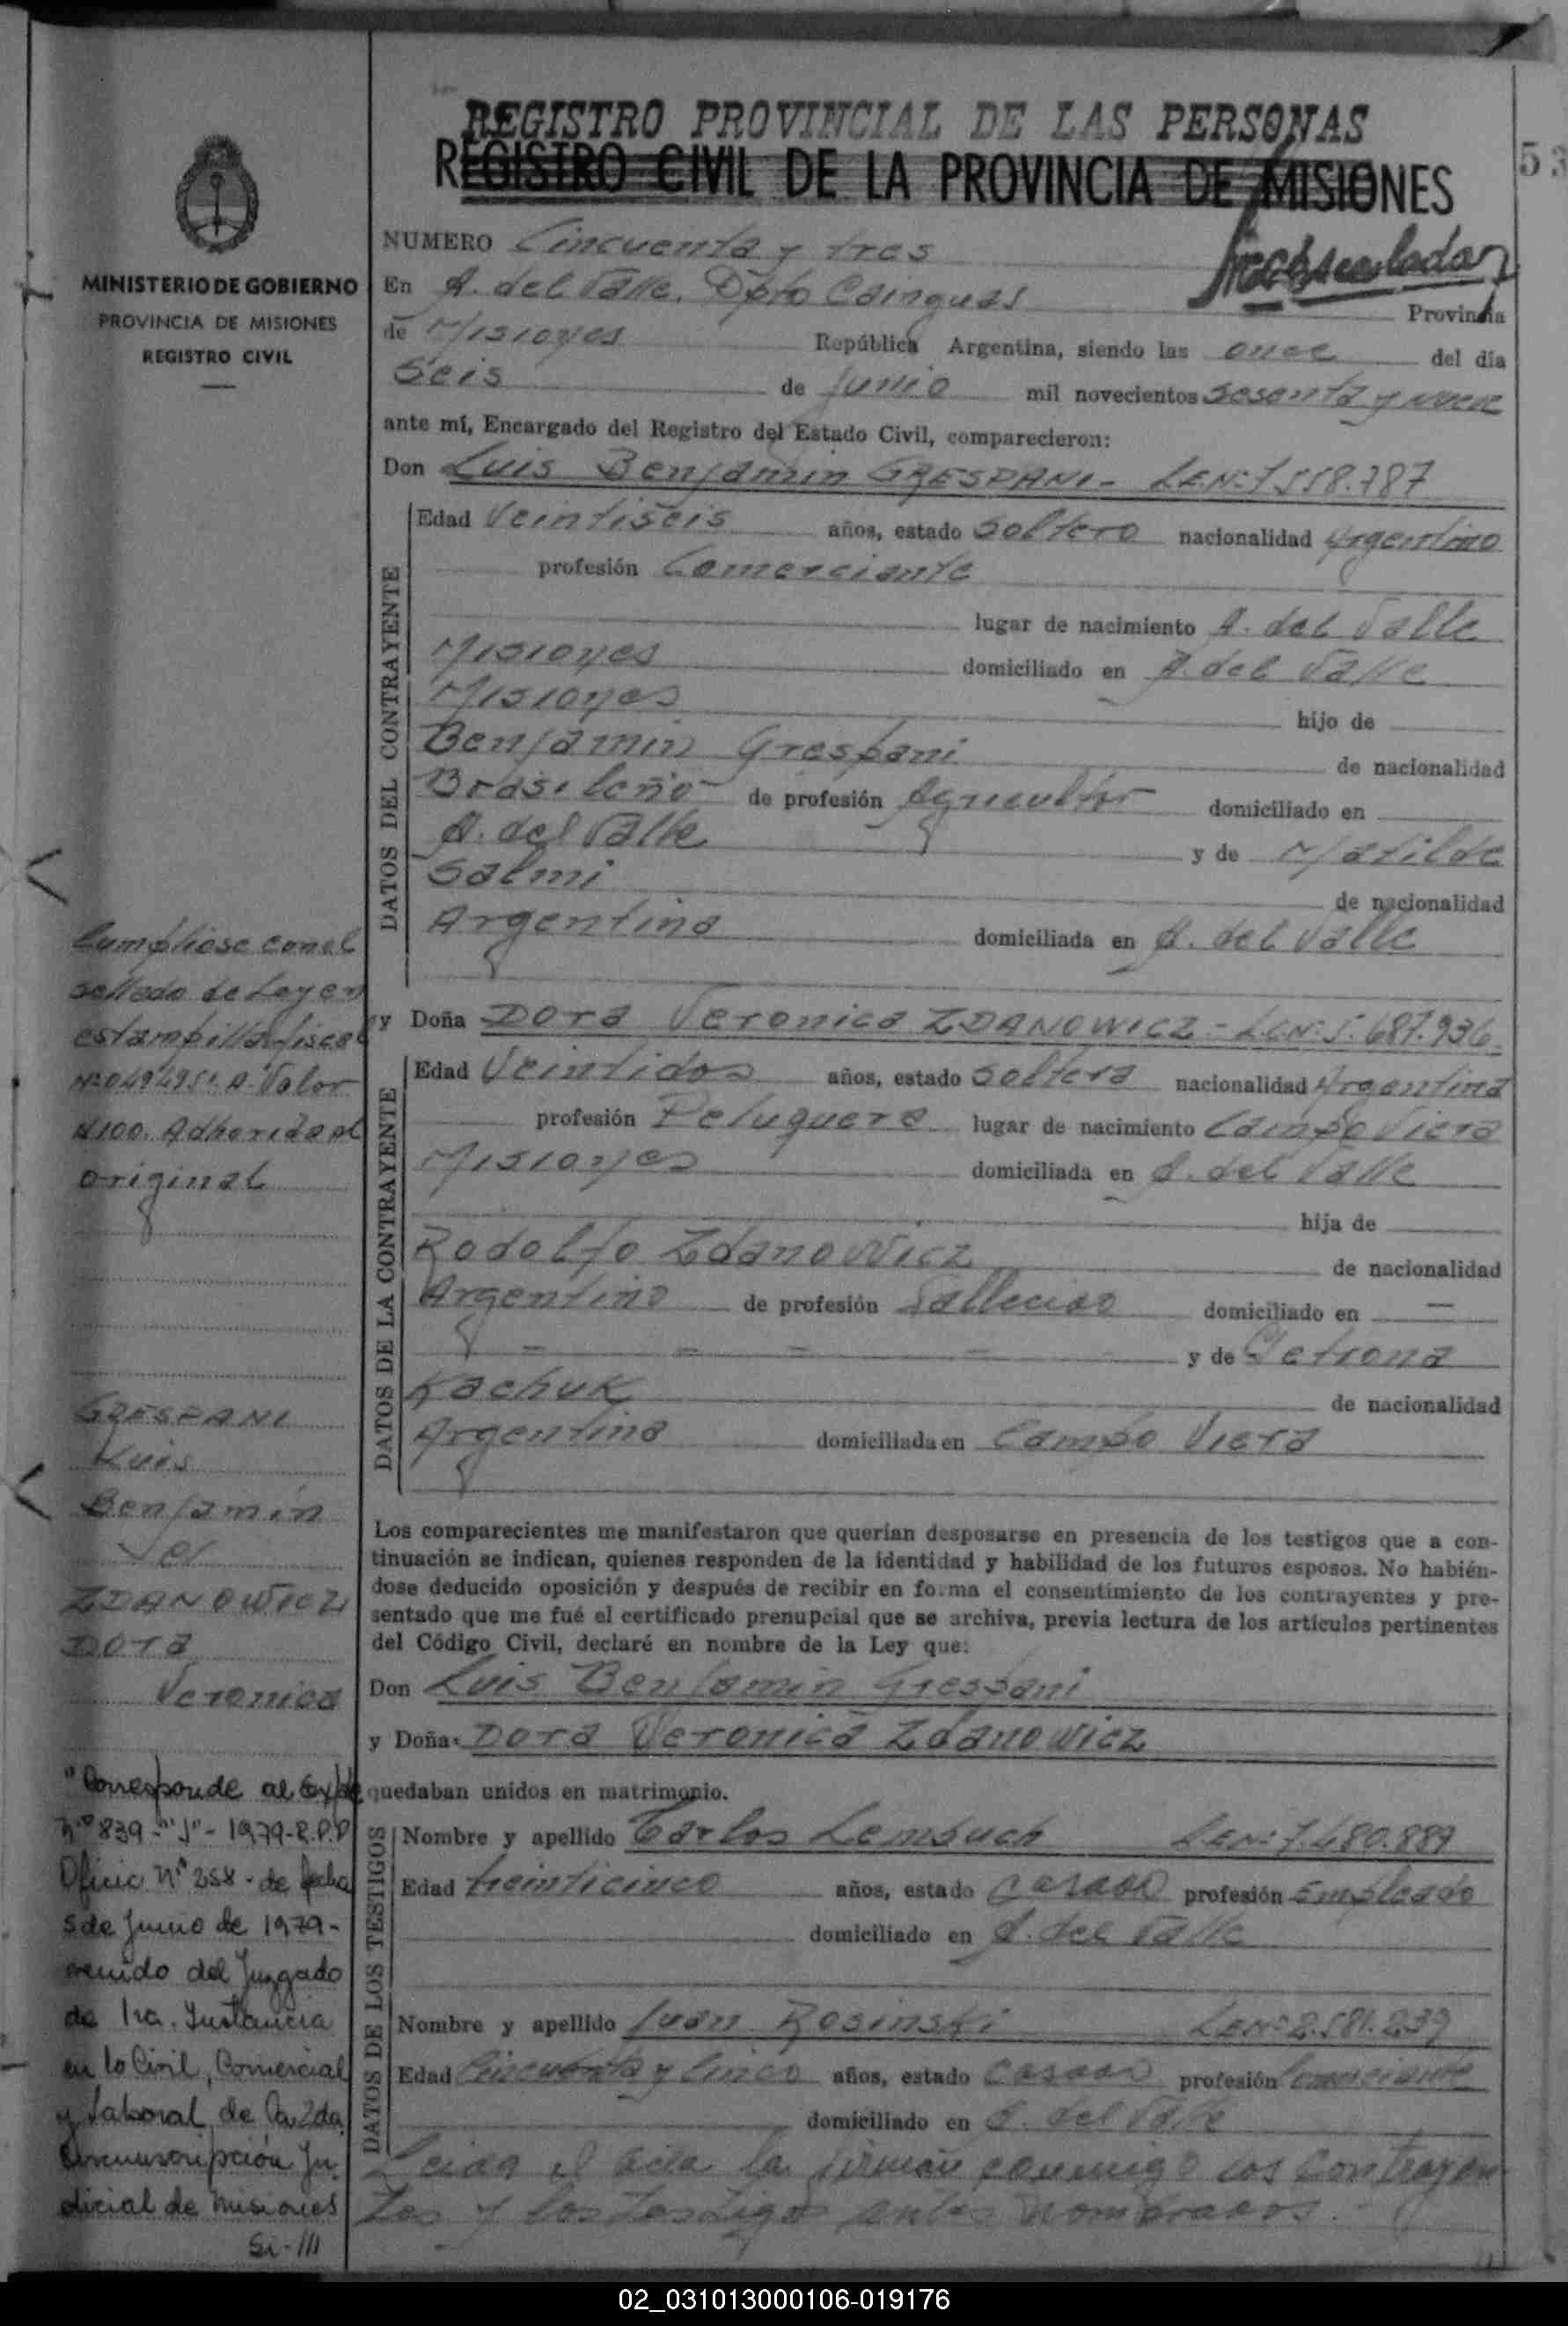 REGISTRO PROVINCIAL DE LAS PERSONAS
REGISTRO CIVIL DE LA PROVINCIA DE MISIONES
53
MINISTERIO DE GOBIERNO
PROVINCIA DE MISIONES
REGISTRO CIVIL
NUMERO Cincuenta y tres
En A. del Valle. Dpto Cainguas Provincia
de Misiones República Argentina, siendo las once del día
Seis de Junio mil novecientos sesenta y nueve
ante mí, Encargado del Registro del Estado Civil, comparecieron:
Don Luis Benjamin GRESPANI - L.E.Nº 7.558.787
DATOS DEL CONTRAYENTE
Edad Veintiseis años, estado Soltero nacionalidad Argentino
profesión Comerciante
lugar de nacimiento A. del Valle
Misiones domiciliado en A. del Valle
Misiones hijo de
Benjamin Grespani de nacionalidad
Brasileño de profesión Agricultor domiciliado en
A. del Valle y de Matilde
Salmi de nacionalidad
Argentina domiciliada en A. del Valle
y Doña Dora Veronica ZDANOWICZ - L.C.Nº 5.687.936
DATOS DE LA CONTRAYENTE
Edad Veintidos años, estado Soltera nacionalidad Argentina
profesión Peluquera lugar de nacimiento Campo Viera
Misiones domiciliada en A. del Valle
hija de
Rodolfo Zdanowicz de nacionalidad
Argentino de profesión Fallecido domiciliado en —
y de Petrona
Kachuk de nacionalidad
Argentina domiciliada en Campo Viera
Los comparecientes me manifestaron que querían desposarse en presencia de los testigos que a con-
tinuación se indican, quienes responden de la identidad y habilidad de los futuros esposos. No habién-
dose deducido oposición y después de recibir en forma el consentimiento de los contrayentes y pre-
sentado que me fué el certificado prenupcial que se archiva, previa lectura de los artículos pertinentes
del Código Civil, declaré en nombre de la Ley que:
Don Luis Benjamin Grespani
y Doña Dora Veronica Zdanowicz
quedaban unidos en matrimonio.
DATOS DE LOS TESTIGOS
Nombre y apellido Carlos Lembuch L.E.Nº 7.480.889
Edad treinticinco años, estado casado profesión Empleado
domiciliado en A. del Valle
Nombre y apellido Juan Rosinski L.E.Nº 2.581.239
Edad Cincuenta y Cinco años, estado casado profesión Comerciante
domiciliado en A. del Valle
Leida el acta la firman conmigo los Contrayen-
tes y los testigos antes nombrados.-
Cumpliose con el
sellado de Ley en
estampilla fiscal
Nº 049495 A. Valor
$100. Adherida al
original
GRESPANI
Luis
Benjamin
ZDANOWICZ
Dora
Veronica
"Corresponde al Expte
Nº 839-"J"-1979-R.P.P
Oficio Nº 258 - de fecha
5 de Junio de 1979-
venido del Juzgado
de 1ra. Instancia
en lo Civil, Comercial
y Laboral de la 2da
Circunscripción Ju-
dicial de Misiones
Si-///
02_031013000106-019176